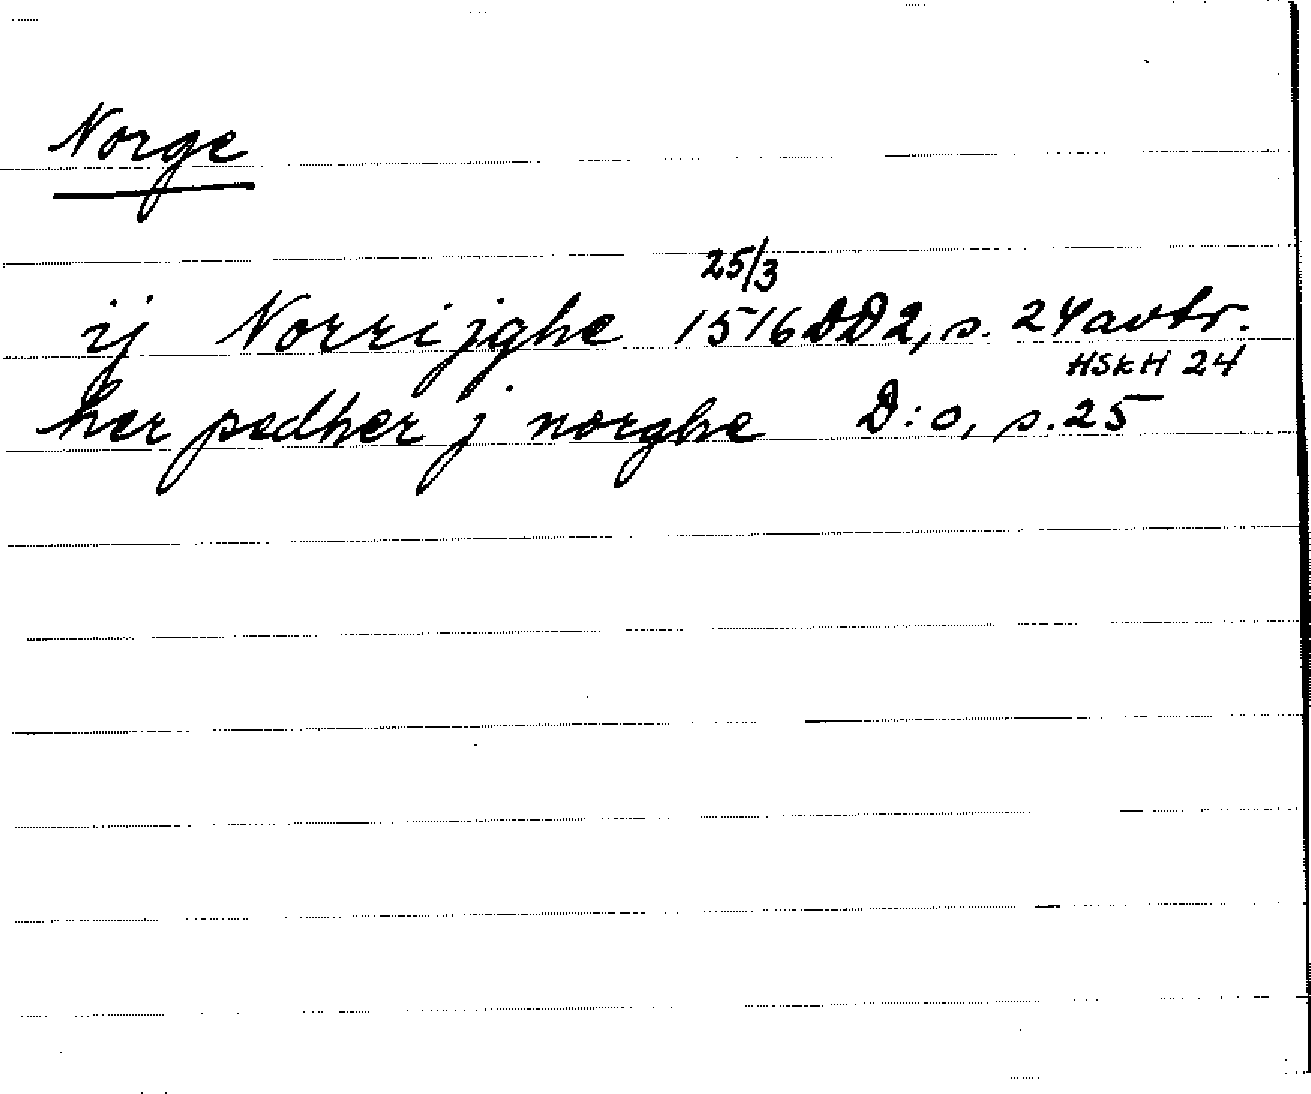 Norge
25/3
ij Norrijghe 1516 DD2, s. 24 avtr.
HSkH 24
her pedher j norghe D:o, s. 25